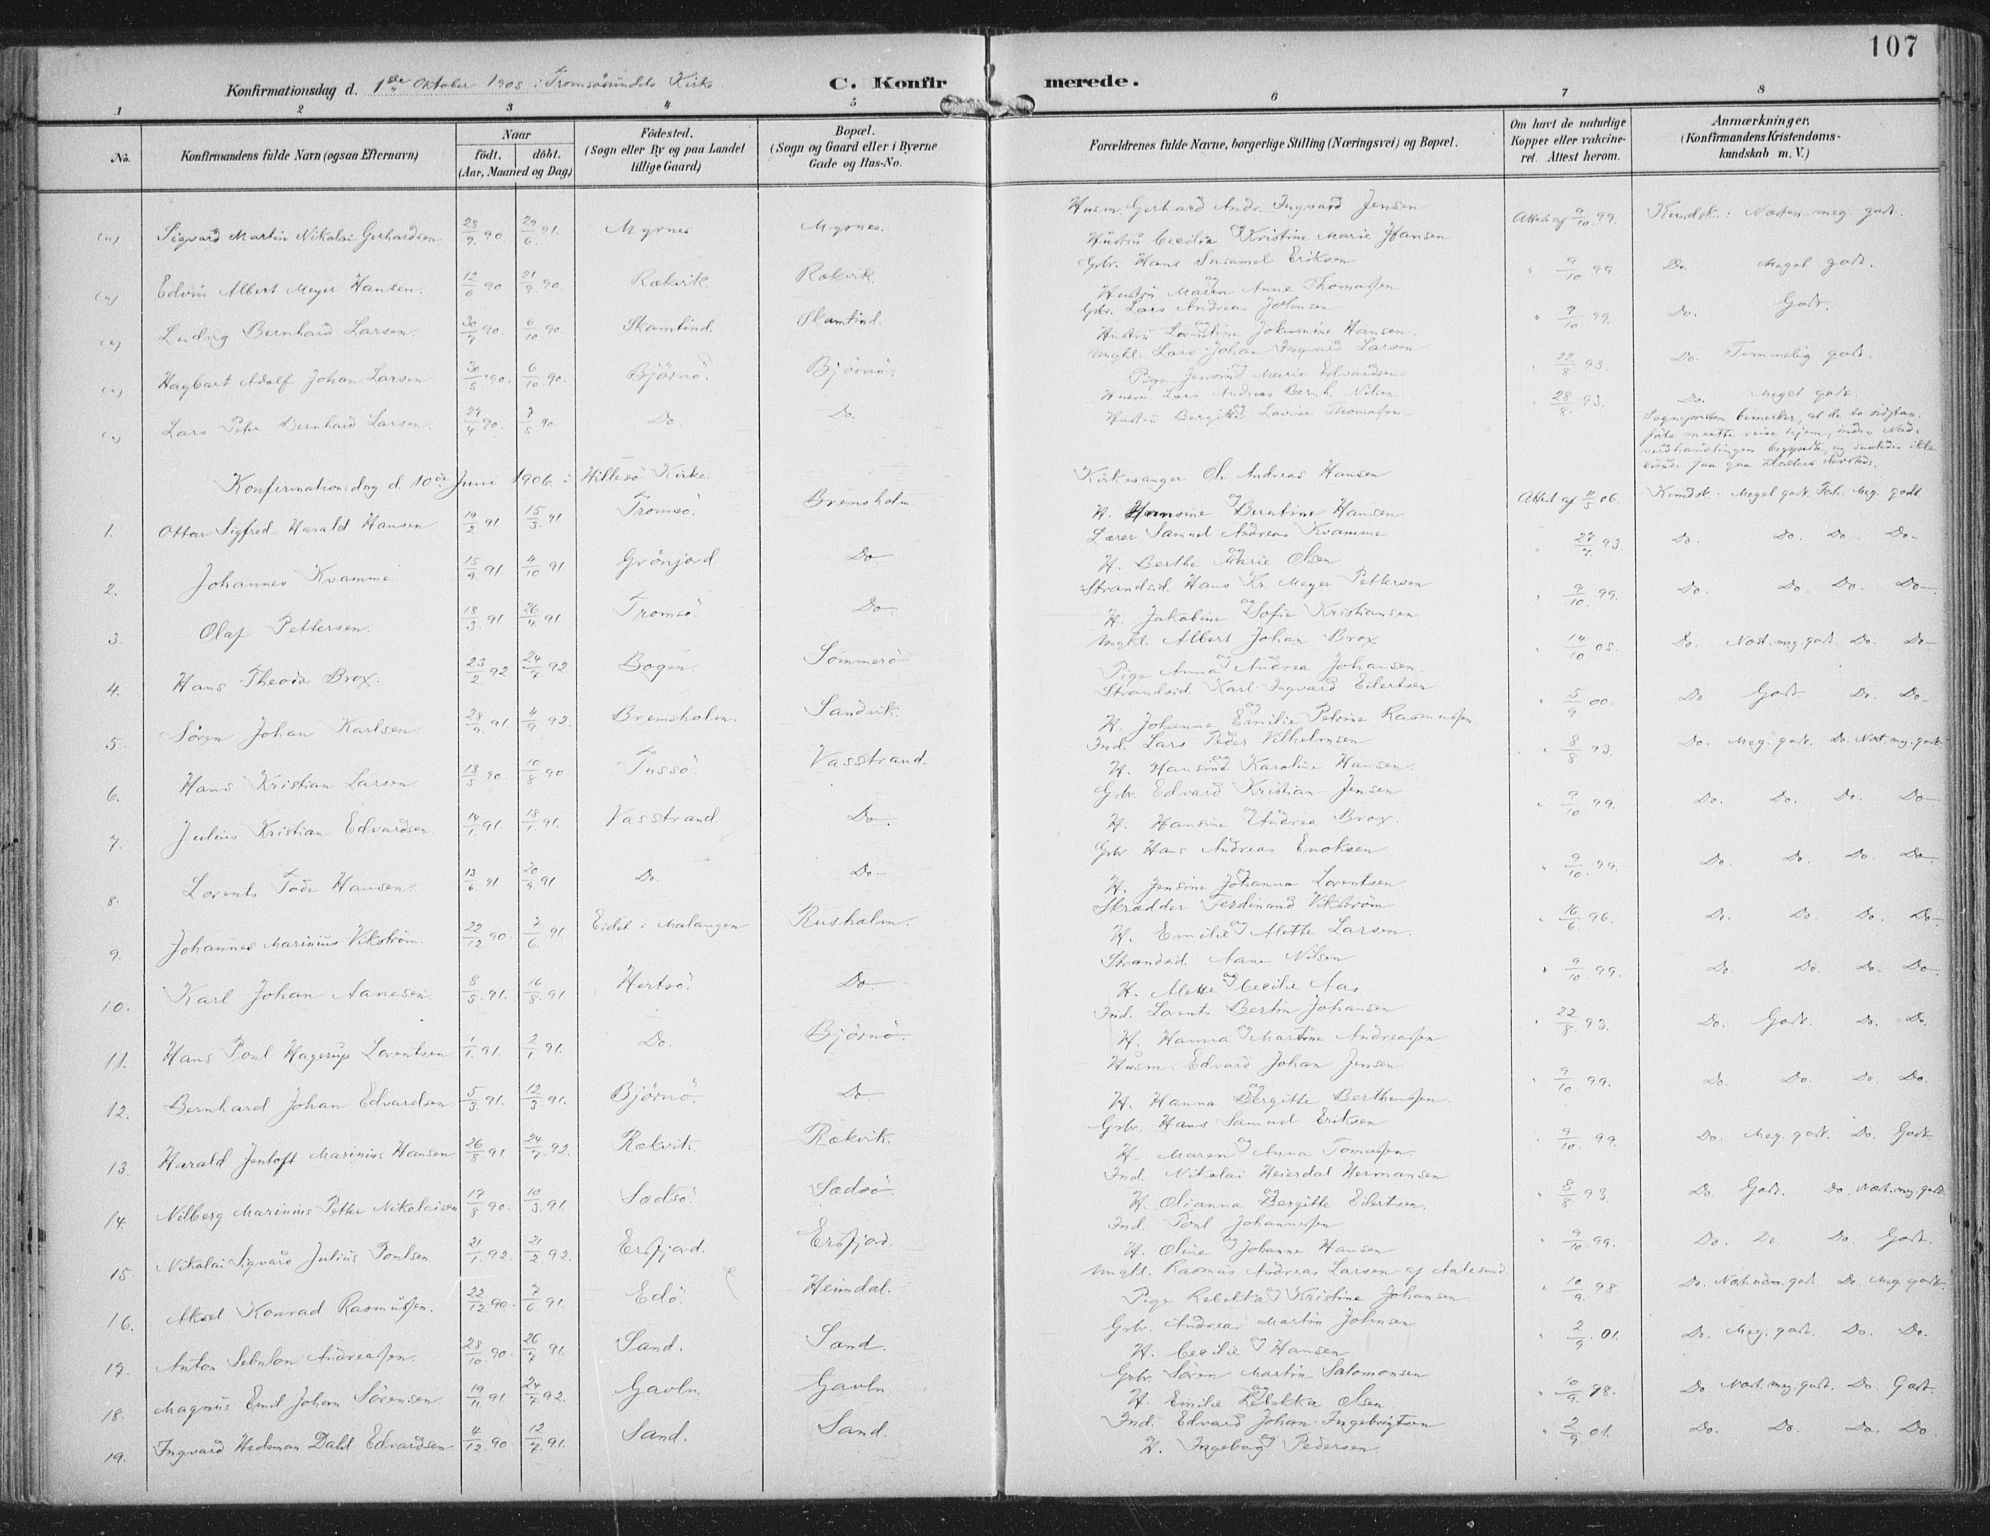 107
Konfirmationsdag d. 1ste Oktober 1905 i Tromsøsundets Kirke
C. Konfirmerede.
1 2 3 4 5 6 7 8
No.
Konfirmandens fulde Navn (ogsaa Efternavn)
Naar
født. døbt.
(Aar, Maaned og Dag)
Fødested.
(Sogn eller By og paa Landet tillige Gaard)
Bopæl.
(Sogn og Gaard eller i Byerne Gade og Hus-No.
Forældrenes fulde Navne, borgerlige Stilling (Næringsvei) og Bopæl.
Om havt de naturlige Kopper eller vakcineret. Attest herom.
Anmærkninger.
(Konfirmandens Kristendomskundskab m. V.)
Sigvard Martin Nikolai Gerhardsen 28/9 90 29/6 91. Myrnes Myrnes. Husm. Gerhard Andr. Ingvard Jensen Attest af 9/10 99. Kundsk: Næsten meg. godt.
Hustru Cecilie Kristine Marie Hansen
Edvin Albert Meyer Hansen. 12/6 90 21/9 90. Rækvik. Rækvik. Gbr. Hans Samuel Eriksen " 9/10 99 Do. Meget godt.
og Hustru Maren Anne Thomassen
Ludvig Bernhard Larsen. 30/7 90. 6/10 90. Skamtind. Skamtind. Gbr. Lars Andreas Johnsen " 9/10 99. Do. Godt.
Hustru Hansen.
Hagbart Adolf Johan Larsen 30/5 90. 6/10 90. Bjørnø. Bjørnø. Ungkl. Lars Johan Ingvald Larsen " 22/8 93. Do. Temmelig godt.
Pige Jensine Marie Edvardsen
Lars Peter Bernhard Larsen. 27/4 90. 7/5 90. Do. Do. Husm. Lars Andreas Bernh. Nilsen " 28/8 93. Do. Meget godt
Hustru Bergitte Lovise Thomassen
Sognepresten bemerker, at de to sidstan-
førte maatte reise hjem, inden Nad-
verdhandlingen begyndte, og saaledes ikke
Konfirmationsdag d. 10de Juni 1906 i Hillesø Kirke
1. Ottar Sigfred Harald Hansen 19/2 91. 15/3 91 Tromsø. Bremsholm. Kirkesanger Ole Andreas Hansen Attest af 11/5 06. Kundsk: Meget godt Forh. Meg. godt
H. Hansine Berntine Hansen
2. Johannes Kvamme 15/9 91 4/10 91 Grønfjord Do Lærer Samuel Andreas Kvamme " 27/7 93. Do. Do. Do. Do
H. Berthe Marie Olsen
3. Olaf Pettersen. 18/3 91 26/4 91 Tromsø Do Strandsid. Hans Kr. Meyer Pettersen " 9/10 99. Do. Do. Do. Do
H. Jakobine og Sofie Kristiansen
4. Hans Theodor Brox. 23/2 92 24/7 92. Bogen. Sommerø Ungkl. Albert Johan Brox " 14/10 05. Do. Næst. meg. godt. Do. Do
Pige Anna og Andrea Johansen.
5. Søren Johan Karlsen 28/9 91 4/9 92. Bremsholm. Sandvik. Strandsid. Karl Ingvard Eilertsen " 5/9 00. Do Godt. Do. Do
H. Johanne og Emilie Petrine Rasmussen.
6. Hans Kristian Larsen 13/5 90. 10/8 90 Tussø. Vasstrand. Ind. Lars Peder Vilhelmsen " 8/8 93. Do. Meg. godt. Do. Næst. meg. godt.
H. Hansine og Karoline Hansen.
7. Julius Kristian Edvardsen. 14/1 91. 18/1 91. Vasstrand Do. Gbr. Edvard Kristian Jensen " 9/10 99. Do. Do. Do. Do
H. Hansine og Andrea Brox.
8. Lorents Tode Hansen. 13/6 91 20/9 91 Do. Do Gbr. Hans Andreas Enoksen " 9/10 99. Do. Do. Do. Do
H. Jensine Johanna Lorentsen
9. Johannes Marinius Vikstrøm. 22/12 90. 7/6 91. Eidet i Malangen Rusholm. Skrædder Ferdinand Vikstrøm " 16/6 96. Do. Do. Do. Do
H. Emilie og Mette Larsen.
10. Karl Johan Aanesen. 8/5 91. 16/8 91 Hertsø. Do Strandsid. Aane Nilsen " 9/10 99. Do. Do. Do Do
H. Mette og Cecilie Aas
11. Hans Poul Hagerup Lorentsen 1/1 91. 2/1 91. Do. Bjørnø. Ind. Lorents Bertin Johansen " 22/8 93. Do. Godt. Do. Do.
H. Hanna og Martine Andreassen
12. Bernhard Johan Edvardsen 5/3 91. 12/3 91. Bjørnø. Do Husm. Edvard Johan Jensen " 9/10 99. Do. Do. Do. Do.
H. Hanna og Bergitte Berthinssen.
13. Harald Jentoft Marinius Hansen 26/8 91 24/7 92. Rækvik Rækvik. Gbr. Hans Samuel Eriksen " 9/10 99. Do. Meg. godt. Do. Godt
H. Maren og Anna Tomassen.
14. Nilberg Marinius Petter Nikolaisen 17/8 90. 10/3 91. Sødsø. Sødsø. Ind. Nikolai Heierdal Hermansen " 8/8 93. Do Godt. Do. Næst. meg. godt
H. Olianna og Bergitte Eilertsen.
15 Nikolai Sigvard Julius Poulsen. 21/1 92. 21/2 92. Ersfjord. Ersfjord. Ind. Poul Johannessen " 9/10 99. Do. Do. Do. Godt.
H. Oline og Johanne Hansen
16. Aksel Konrad Rasmussen. 22/12 90. 7/6 91. Edø. Heimdal. Ungkl. Rasmus Andreas Larsen af Aalesund. " 10/9 98. Do. Næst. udm. godt Do. Meg. godt.
Pige Rebekka og Kristine Johansen.
17. Anton Sebulon Andreassen. 28/10 90. 26/7 91. Sand. Sand. Gbr. Andreas Martin Johnsen " 2/9 01. Do. Meg. godt. Do. Do.
H. Cecilie og Hansen
18. Magnus Emil Johan Sørensen 19/11 91 24/7 92. Gavln. Gavln. Gbr. Søren Martin Salomonsen " 10/9 98. Do. Næst. meg. godt. Do. Godt.
H. Emilie og Rebekka Olsen
19. Ingvard Hedeman Dahl Edvardsen 4/12 90 12/7 91. Sand. Sand. Ind. Edvard Johan Ingebrigtsen " 2/9 01. Do. Do. Do. Do.
H. Ingeborg Pedersen